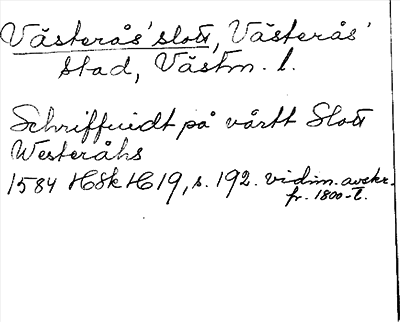 Västerås' slott, Västerås'
stad, Västm. l.
Schriffuidt på vårtt Slott
Westeråhs
1584 HSk H 19, s. 192. vidim. avskr.
fr. 1800-t.